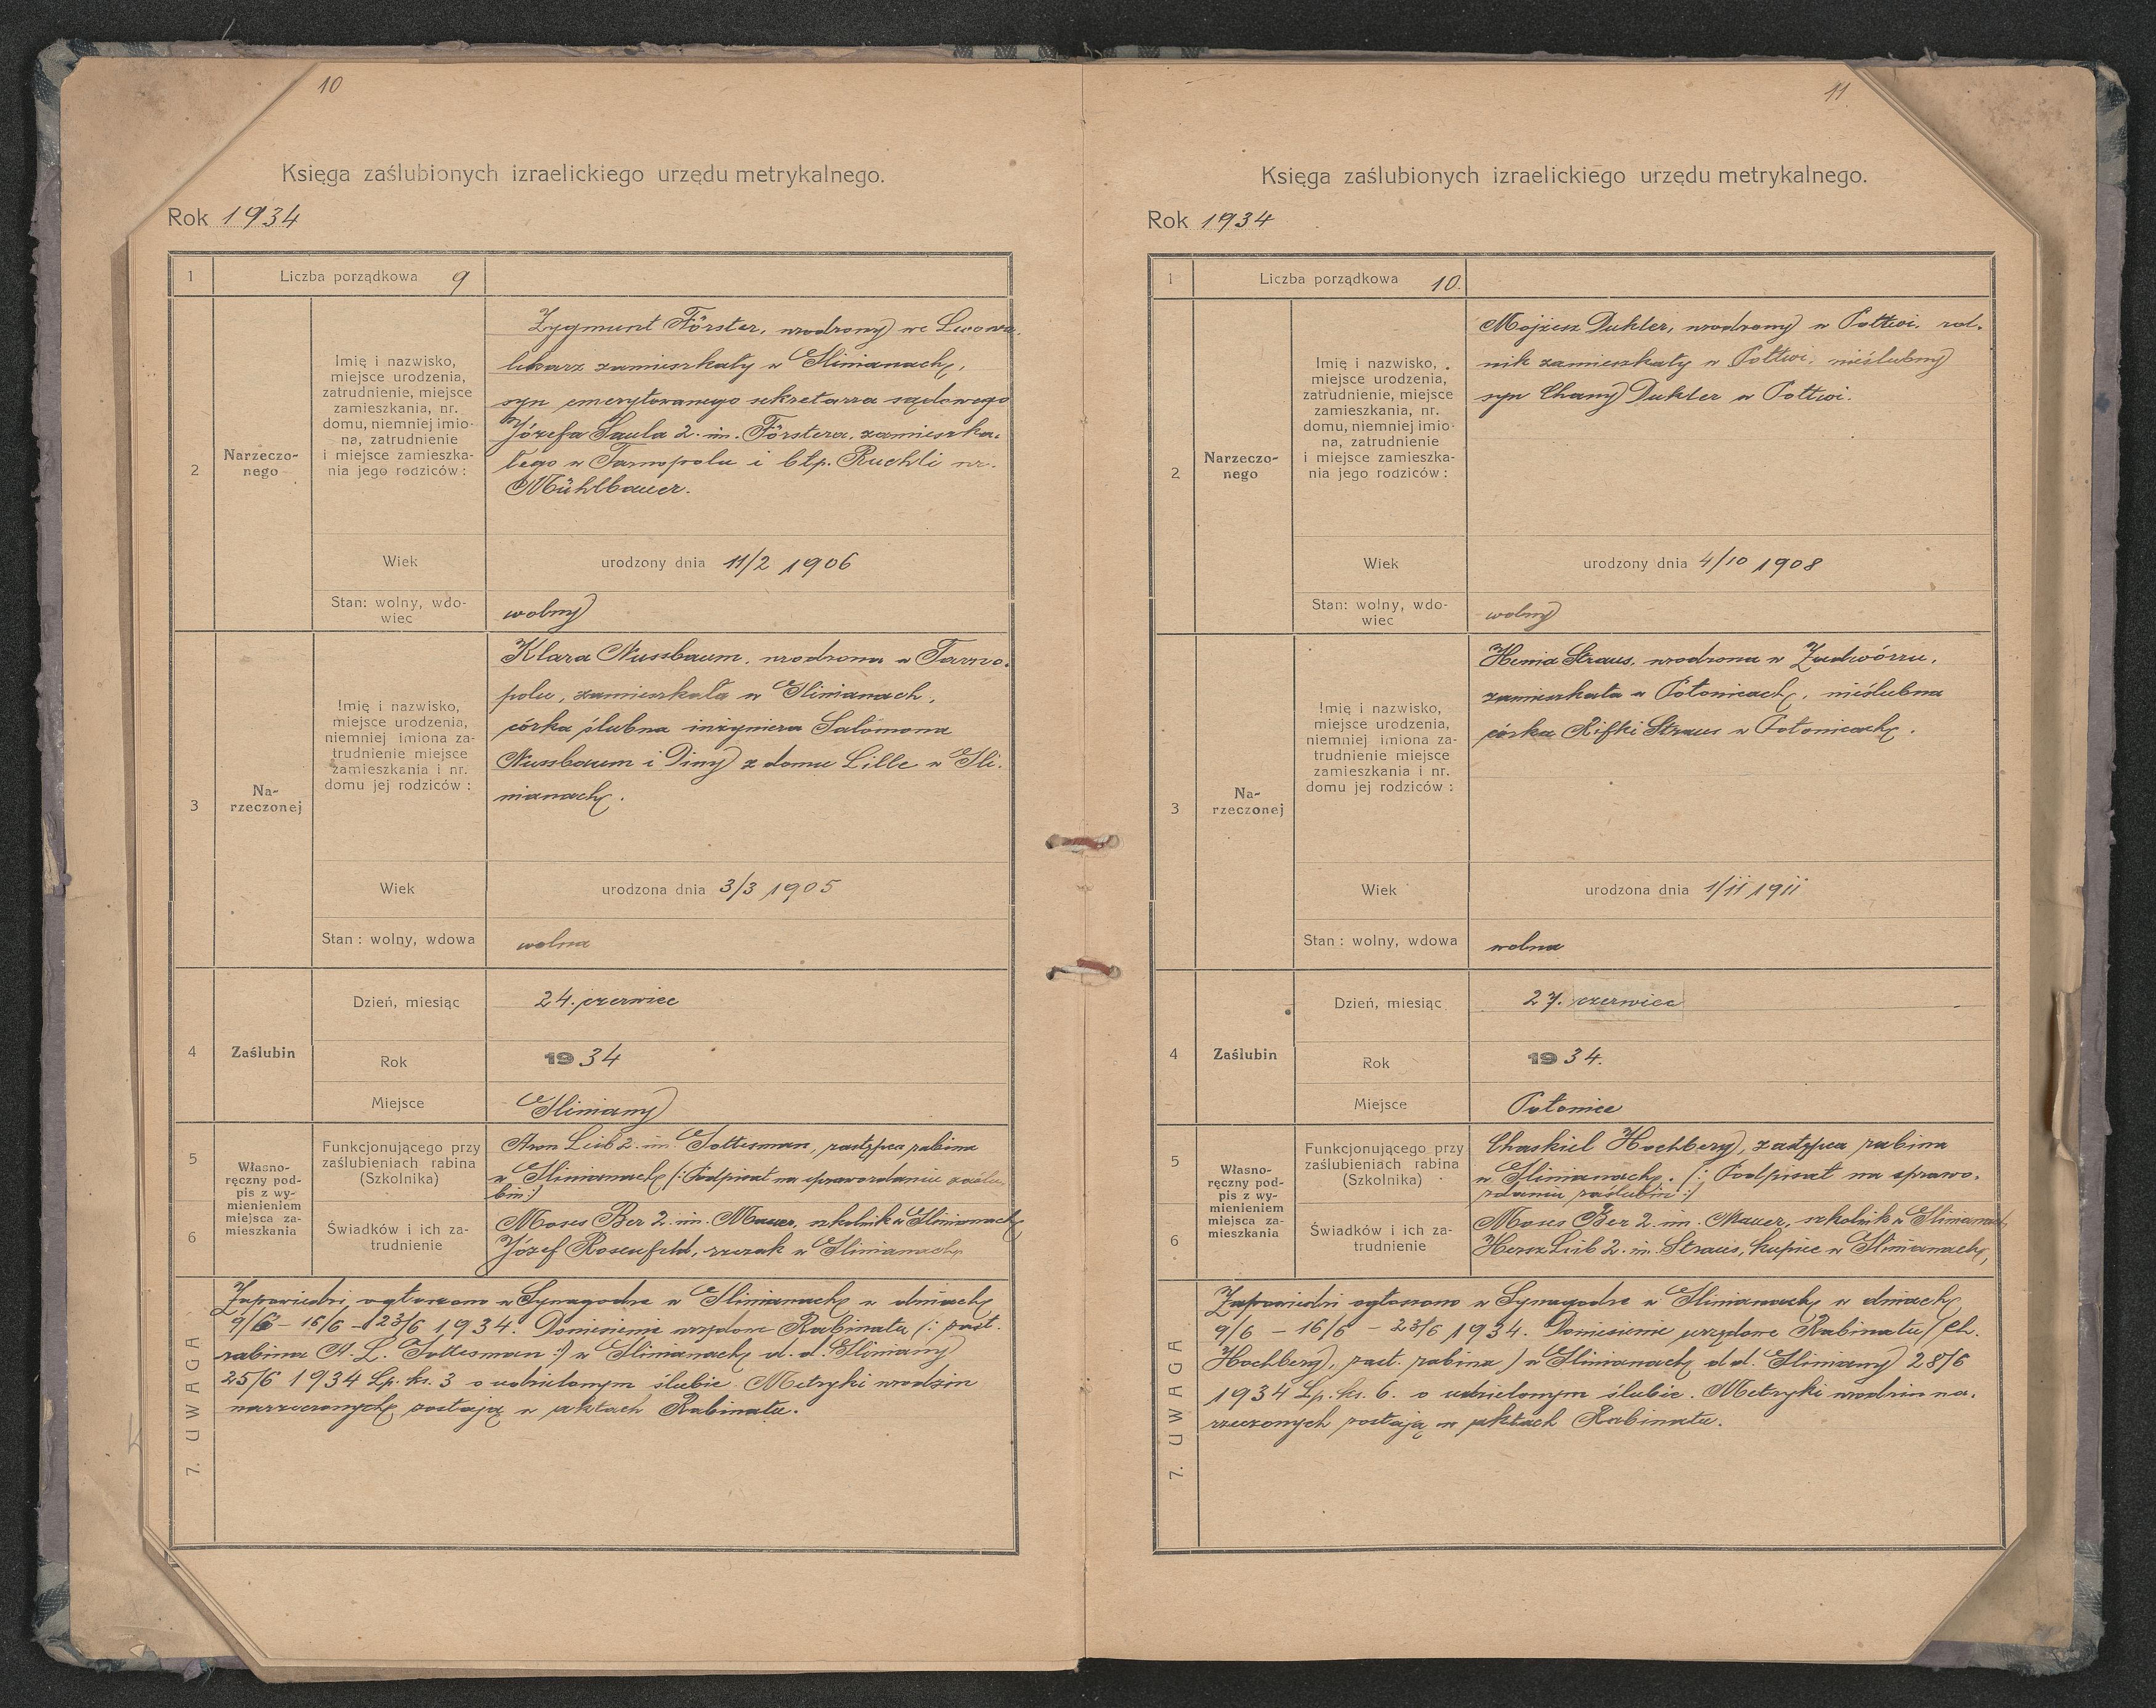 10
Księga zaślubionych izraelickiego urzędu metrykalnego.
Rok 1934
1
Liczba porządkowa 9
2
Narzeczo-
nego
Imię i nazwisko,
miejsce urodzenia,
zatrudnienie, miejsce
zamieszkania, nr.
domu, niemniej imio-
na, zatrudnienie
i miejsce zamieszka-
nia jego rodziców:
Zygmunt Förster, urodzony we Lwowie,
lekarz zamieszkały w Glinianach,
syn emerytowanego sekretarza sądowego
Józefa Saula 2. im. Förstera, zamieszka-
łego w Tarnopolu i błp. Ruchli ur.
Mühlbauer.
Wiek
urodzony dnia 11/2 1906
Stan: wolny, wdo-
wiec
wolny
3
Na-
rzeczonej
Imię i nazwisko,
miejsce urodzenia,
niemniej imiona za-
trudnienie miejsce
zamieszkania i nr.
domu jej rodziców:
Klara Nussbaum, urodzona w Tarno-
polu, zamieszkała w Glinianach,
córka ślubna inżyniera Salomona
Nussbaum i Diny z domu Lille w Gli-
nianach.
Wiek
urodzona dnia 3/3 1905
Stan: wolny, wdowa
wolna
4
Zaślubin
Dzień, miesiąc
24. czerwiec
Rok
1934
Miejsce
Gliniany
5
6
Własno-
ręczny pod-
pis z wy-
mienieniem
miejsca za-
mieszkania
Funkcjonującego przy
zaślubieniach rabina
(Szkolnika)
Aron Leib 2. im. Gottesman, zastępca rabina
w Glinianach (: Podpisał na sprawozdaniu zaślu-
bin :)
Świadków i ich za-
trudnienie
Moses Ber 2. im. Mauer, szkolnik w Glinianach
Józef Rosenfeld, rzezak w Glinianach
7. UWAGA
Zapowiedzi ogłoszono w Synagodze w Glinianach w dniach
9/6 - 16/6 - 23/6 1934. Doniesienie urzędowe Rabinatu (: zast.
rabina A. L. Gottesman :) w Glinianach d. d. Gliniany
25/6 1934 Lp. ks. 3 o udzielonym ślubie. Metryki urodzin
narzeczonych zostają w aktach Rabinatu.
11
Księga zaślubionych izraelickiego urzędu metrykalnego.
Rok 1934
1
Liczba porządkowa 10.
2
Narzeczo-
nego
Imię i nazwisko,
miejsce urodzenia,
zatrudnienie, miejsce
zamieszkania, nr.
domu, niemniej imio-
na, zatrudnienie
i miejsce zamieszka-
nia jego rodziców:
Mojżesz Dukler, urodzony w Połtwi, rol-
nik zamieszkały w Połtwi, nieślubny
syn Chany Dukler w Połtwi.
Wiek
urodzony dnia 4/10 1908
Stan: wolny, wdo-
wiec
wolny
3
Na-
rzeczonej
Imię i nazwisko,
miejsce urodzenia,
niemniej imiona za-
trudnienie miejsce
zamieszkania i nr.
domu jej rodziców:
Henia Straus, urodzona w Zadwórzu,
zamieszkała w Połonicach, nieślubna
córka Rifki Straus w Połonicach.
Wiek
urodzona dnia 1/11 1911
Stan: wolny, wdowa
wolna
4
Zaślubin
Dzień, miesiąc
27. czerwiec
Rok
1934.
Miejsce
Połonice
5
6
Własno-
ręczny pod-
pis z wy-
mienieniem
miejsca za-
mieszkania
Funkcjonującego przy
zaślubieniach rabina
(Szkolnika)
Chaskiel Hochberg, zastępca rabina
w Glinianach. (: Podpisał na sprawo-
zdaniu zaślubin :)
Świadków i ich za-
trudnienie
Moses Ber 2. im. Mauer, szkolnik w Glinianach,
Hersz Leib 2. im. Straus, kupiec w Glinianach,
7. UWAGA
Zapowiedzi ogłoszono w Synagodze w Glinianach w dniach
9/6 - 16/6 - 23/6 1934. Doniesienie urzędowe Rabinatu (Ch.
Hochberg, zast. rabina) w Glinianach d d. Gliniany 28/6
1934 Lp. ks. 6. o udzielonym ślubie. Metryki urodzin na-
rzeczonych zostają w aktach Rabinatu.